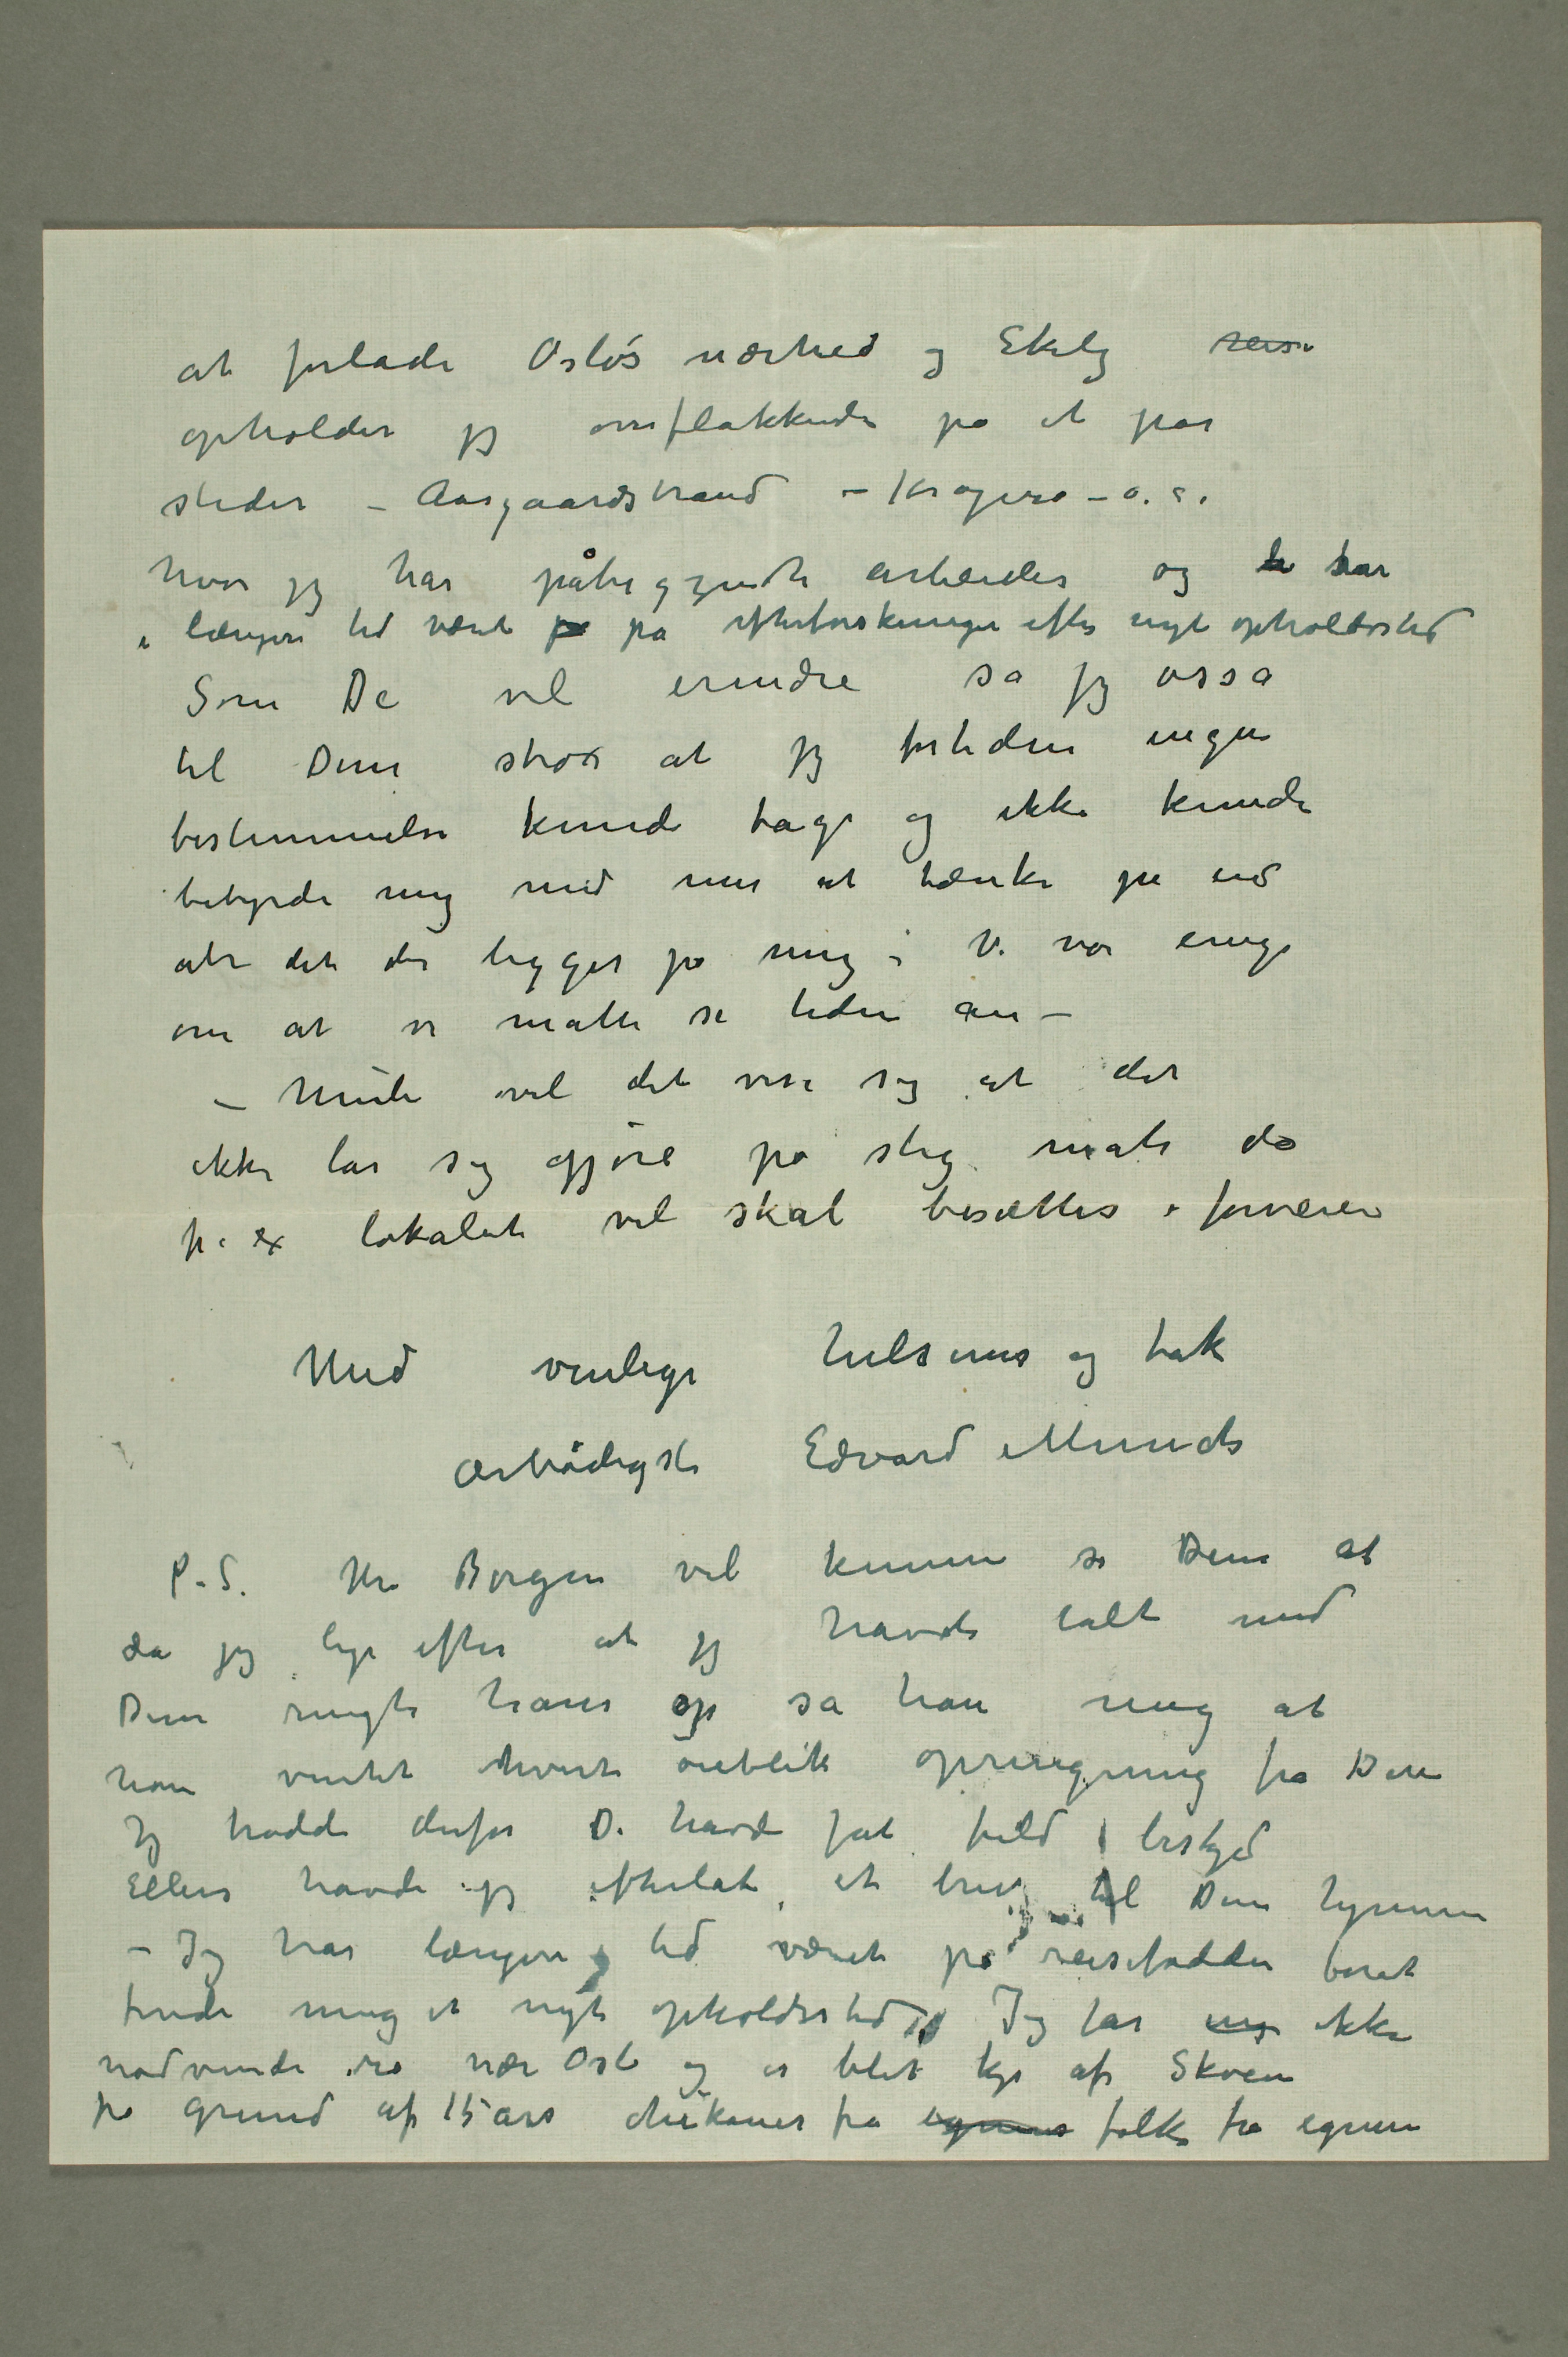 at forlade Oslo's nærhed og Ekely reise
opholder jeg omflakkende på et par
steder – Aasgaardstrand – Kragerø – o. s.
hvor jeg har påbegyndte arbeider og har
i længere tid været på efterforskninger efter nyt opholdssted
Som De vil erindre sa jeg osså
til Dem strax at jeg fortiden ingen
bestemmelse kunde tage og ikke kunde
bebyrde mig med mer at tænke på end
alt det der ligger på mig – Vi var enige
om at vi måtte se tiden an –
– Muli vel det vise sig at det
ikke lar sig gjøre på slig måte da
f. ex lokalet vel skal besættes i forveien
Med venlige hilsener og tak
ærbødigst Edvard Munch
P.S. Hr Borgen vil kunne si Dem at
da jeg lige efter at jeg havde talt med
Dem ringte ham op sa han mig at
han ventet hvert øieblik opringning fra Dem
Jeg trodde derfor De havde fåt fuld beskjed
Ellers havde jeg efterlat et brev til Dem hjemme
– Jeg har længere tid været på reisefødder foråt
finde mig et nyt opholdssted Jeg tar ikke
nødvendi nær Oslo og er blit kje af Skøien
på grund af 15 års chikaner fra egnens folk fra egnen